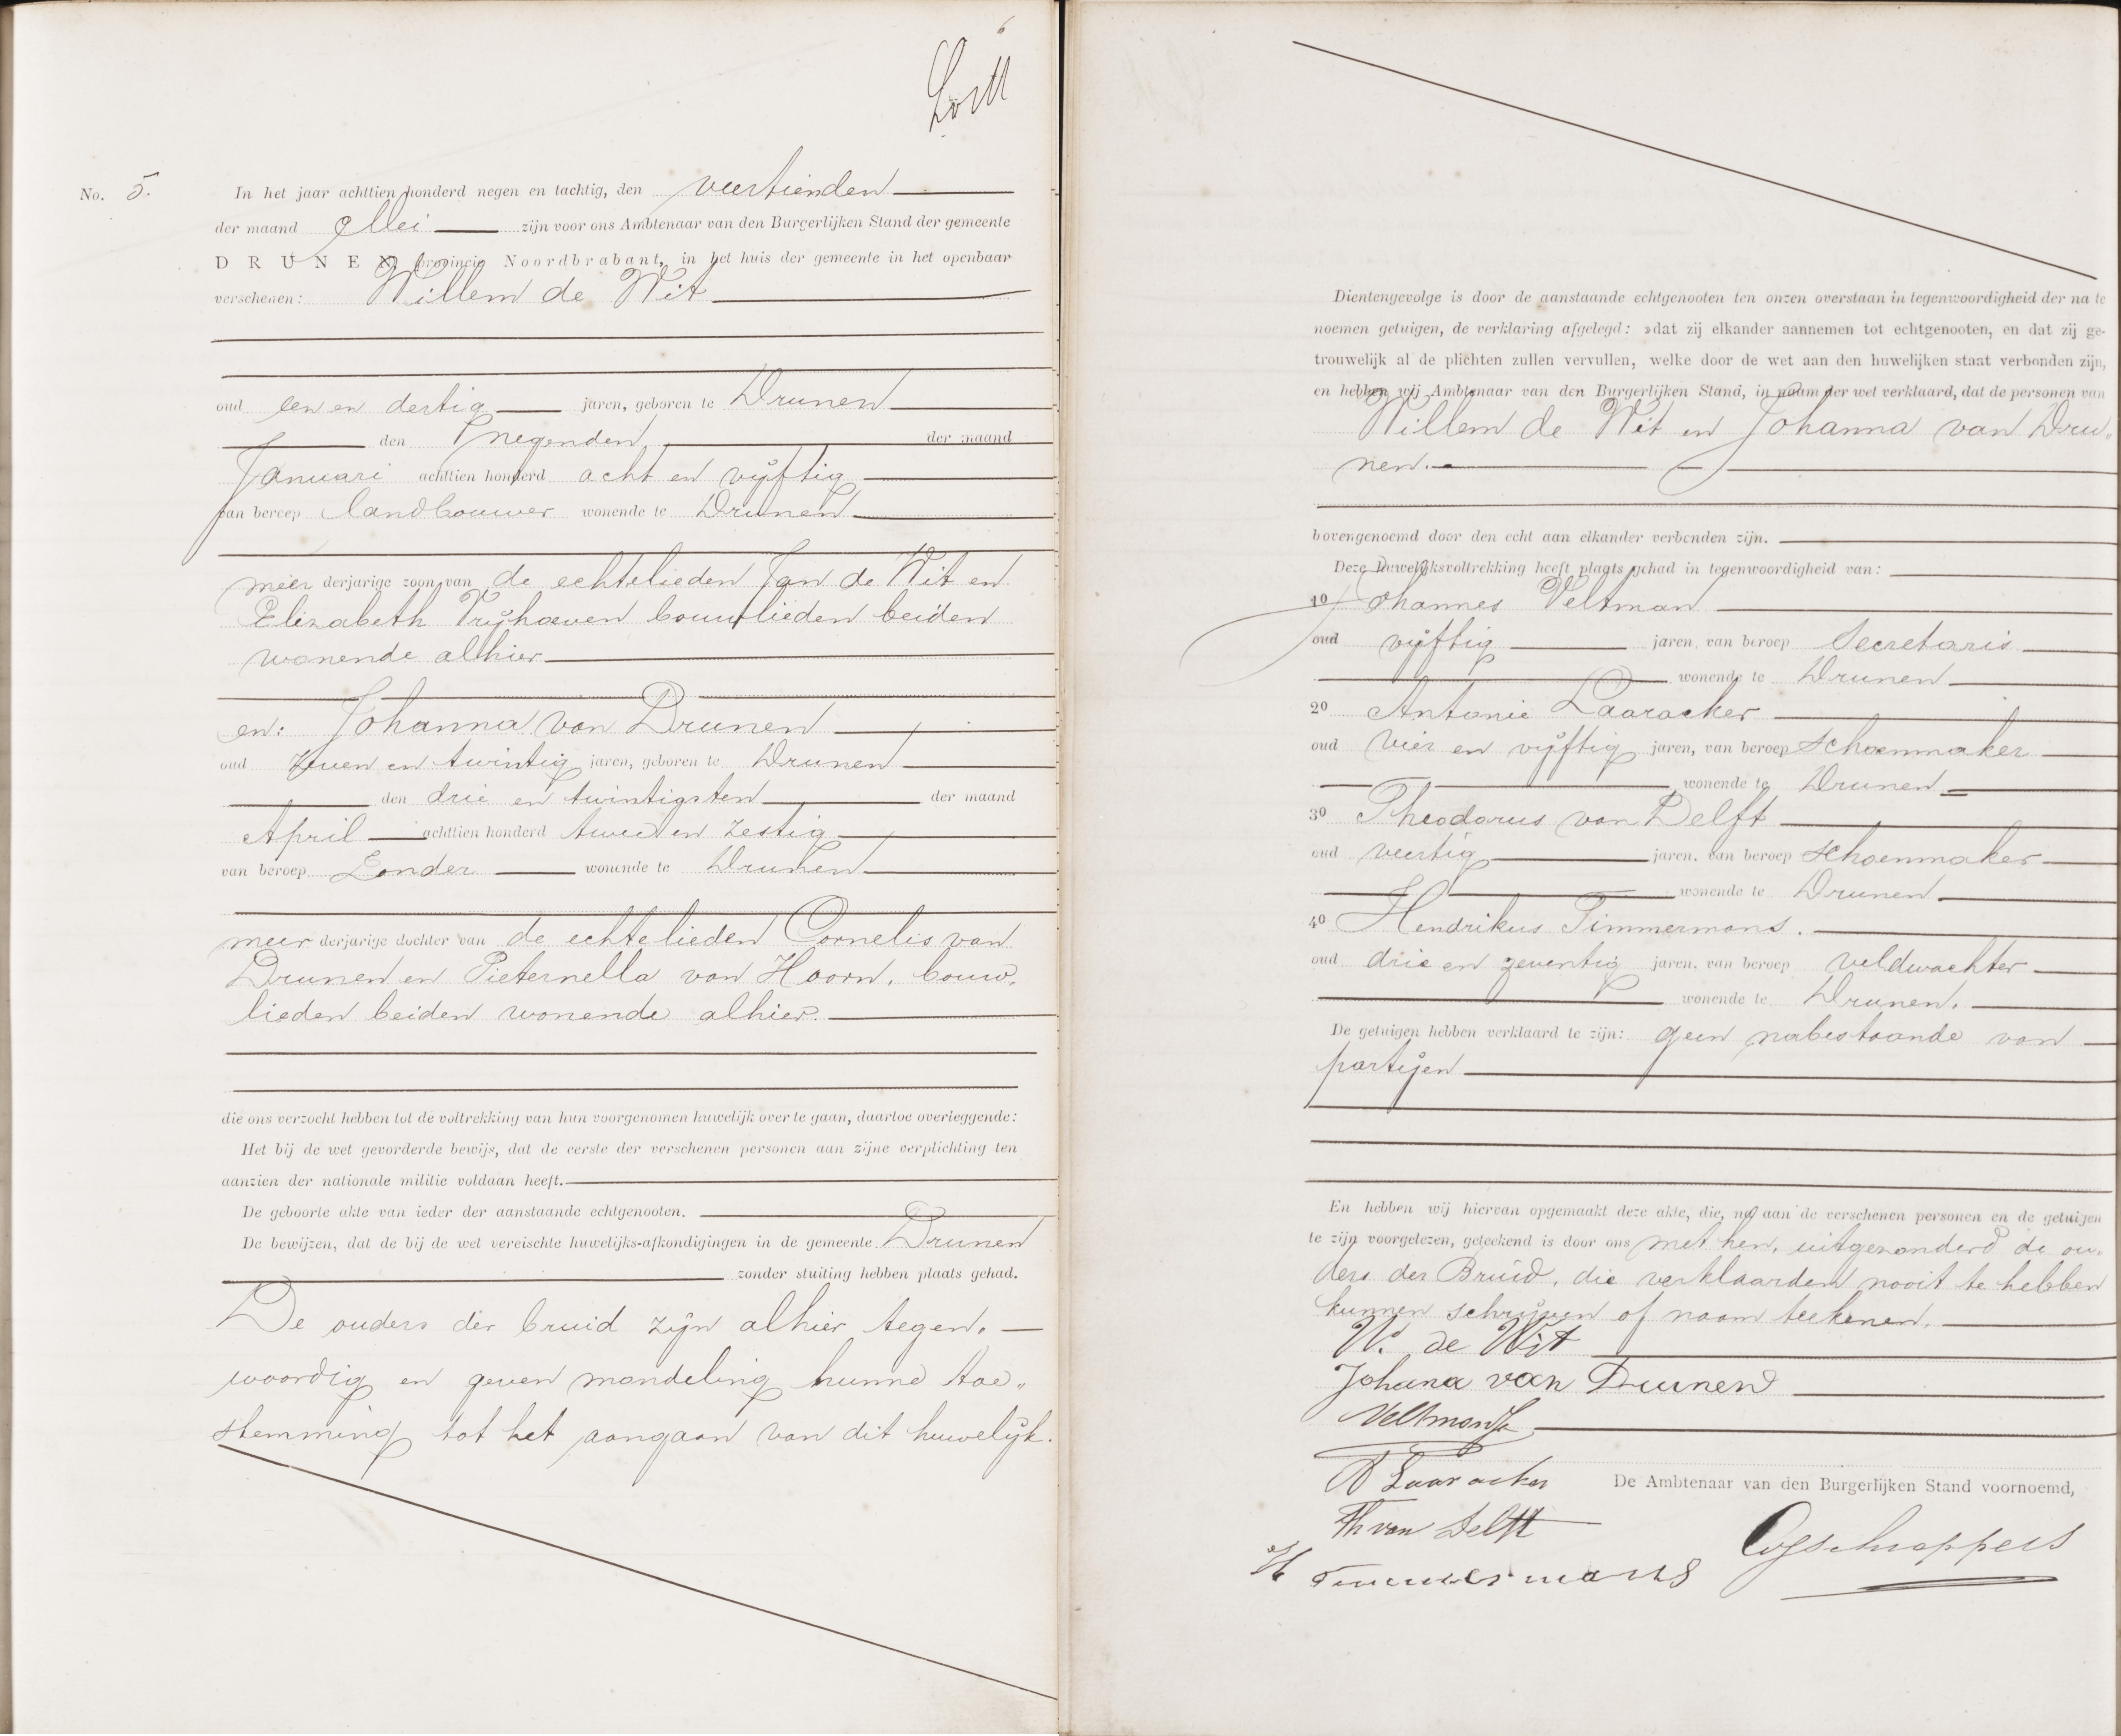 6
No. 5.
In het jaar achttien honderd negen en tachtig, den veertienden
der maand Mei zijn voor ons Ambtenaar van den Burgerlijken Stand der gemeente
DRUNEN provincie Noordbrabant, in het huis der gemeente in het openbaar
verschenen: Willem de Wit
oud een en dertig jaren, geboren te Drunen
den negenden, der maand
Januari achttien honderd acht en vijftig
van beroep landbouwer wonende te Drunen
meer derjarige zoon van de echtelieden Jan de Wit en
Elizabeth Vrijhoeven bouwlieden beiden
wonende alhier
en: Johanna van Drunen
oud zeven en twintig jaren, geboren te Drunen
den drie en twintigsten der maand
April achttien honderd twee en zestig
van beroep Zonder wonende te Drunen
meer derjarige dochter van de echtelieden Cornelis van
Drunen en Pieternella van Hoorn, bouw„
lieden beiden wonende alhier.
die ons verzocht hebben tot de voltrekking van hun voorgenomen huwelijk over te gaan, daartoe overleggende:
Het bij de wet gevorderde bewijs, dat de eerste der verschenen personen aan zijne verplichting ten
aanzien der nationale militie voldaan heeft.
De geboorte akte van ieder der aanstaande echtgenooten.
De bewijzen, dat de bij de wet vereischte huwelijks-afkondigingen in de gemeente Drunen
zonder stuiting hebben plaats gehad.
De ouders der bruid zijn alhier tegen„
woordig en geven mondeling hunne toe„
stemming tot het aangaan van dit huwelijk.
Dientengevolge is door de aanstaande echtgenooten ten onzen overstaan in tegenwoordigheid der na te
noemen getuigen, de verklaring afgelegd: »dat zij elkander aannemen tot echtgenooten, en dat zij ge-
trouwelijk al de plichten zullen vervullen, welke door de wet aan den huwelijken staat verbonden zijn,
en hebben wij Ambtenaar van den Burgerlijken Stand, in naam der wet verklaard, dat de personen van
Willem de Wit en Johanna van Dru„
nen.
bovengenoemd door den echt aan elkander verbonden zijn.
Deze huwelijksvoltrekking heeft plaats gehad in tegenwoordigheid van:
1o Johannes Veltman
oud vijftig jaren, van beroep Secretaris
wonende te Drunen
2o Antonie Laaracker
oud vier en vijftig jaren, van beroep schoenmaker
wonende te Drunen
3o Theodorus van Delft
oud veertig jaren, van beroep schoenmaker
wonende te Drunen
4o Hendrikus Timmermans.
oud drie en zeventig jaren, van beroep veldwachter
wonende te Drunen.
De getuigen hebben verklaard te zijn: geen nabestaande van
partijen
En hebben wij hiervan opgemaakt deze akte, die, na aan de verschenen personen en de getuigen
te zijn voorgelezen, geteekend is door ons met hen, uitgezonderd de ou„
ders der Bruid, die verklaarden nooit te hebben
kunnen schrijven of naam teekenen.
W. de Wit
Johana van Drunen
Veltman
A Laaracker
De Ambtenaar van den Burgerlijken Stand voornoemd,
Th van Delft
H Timmermans